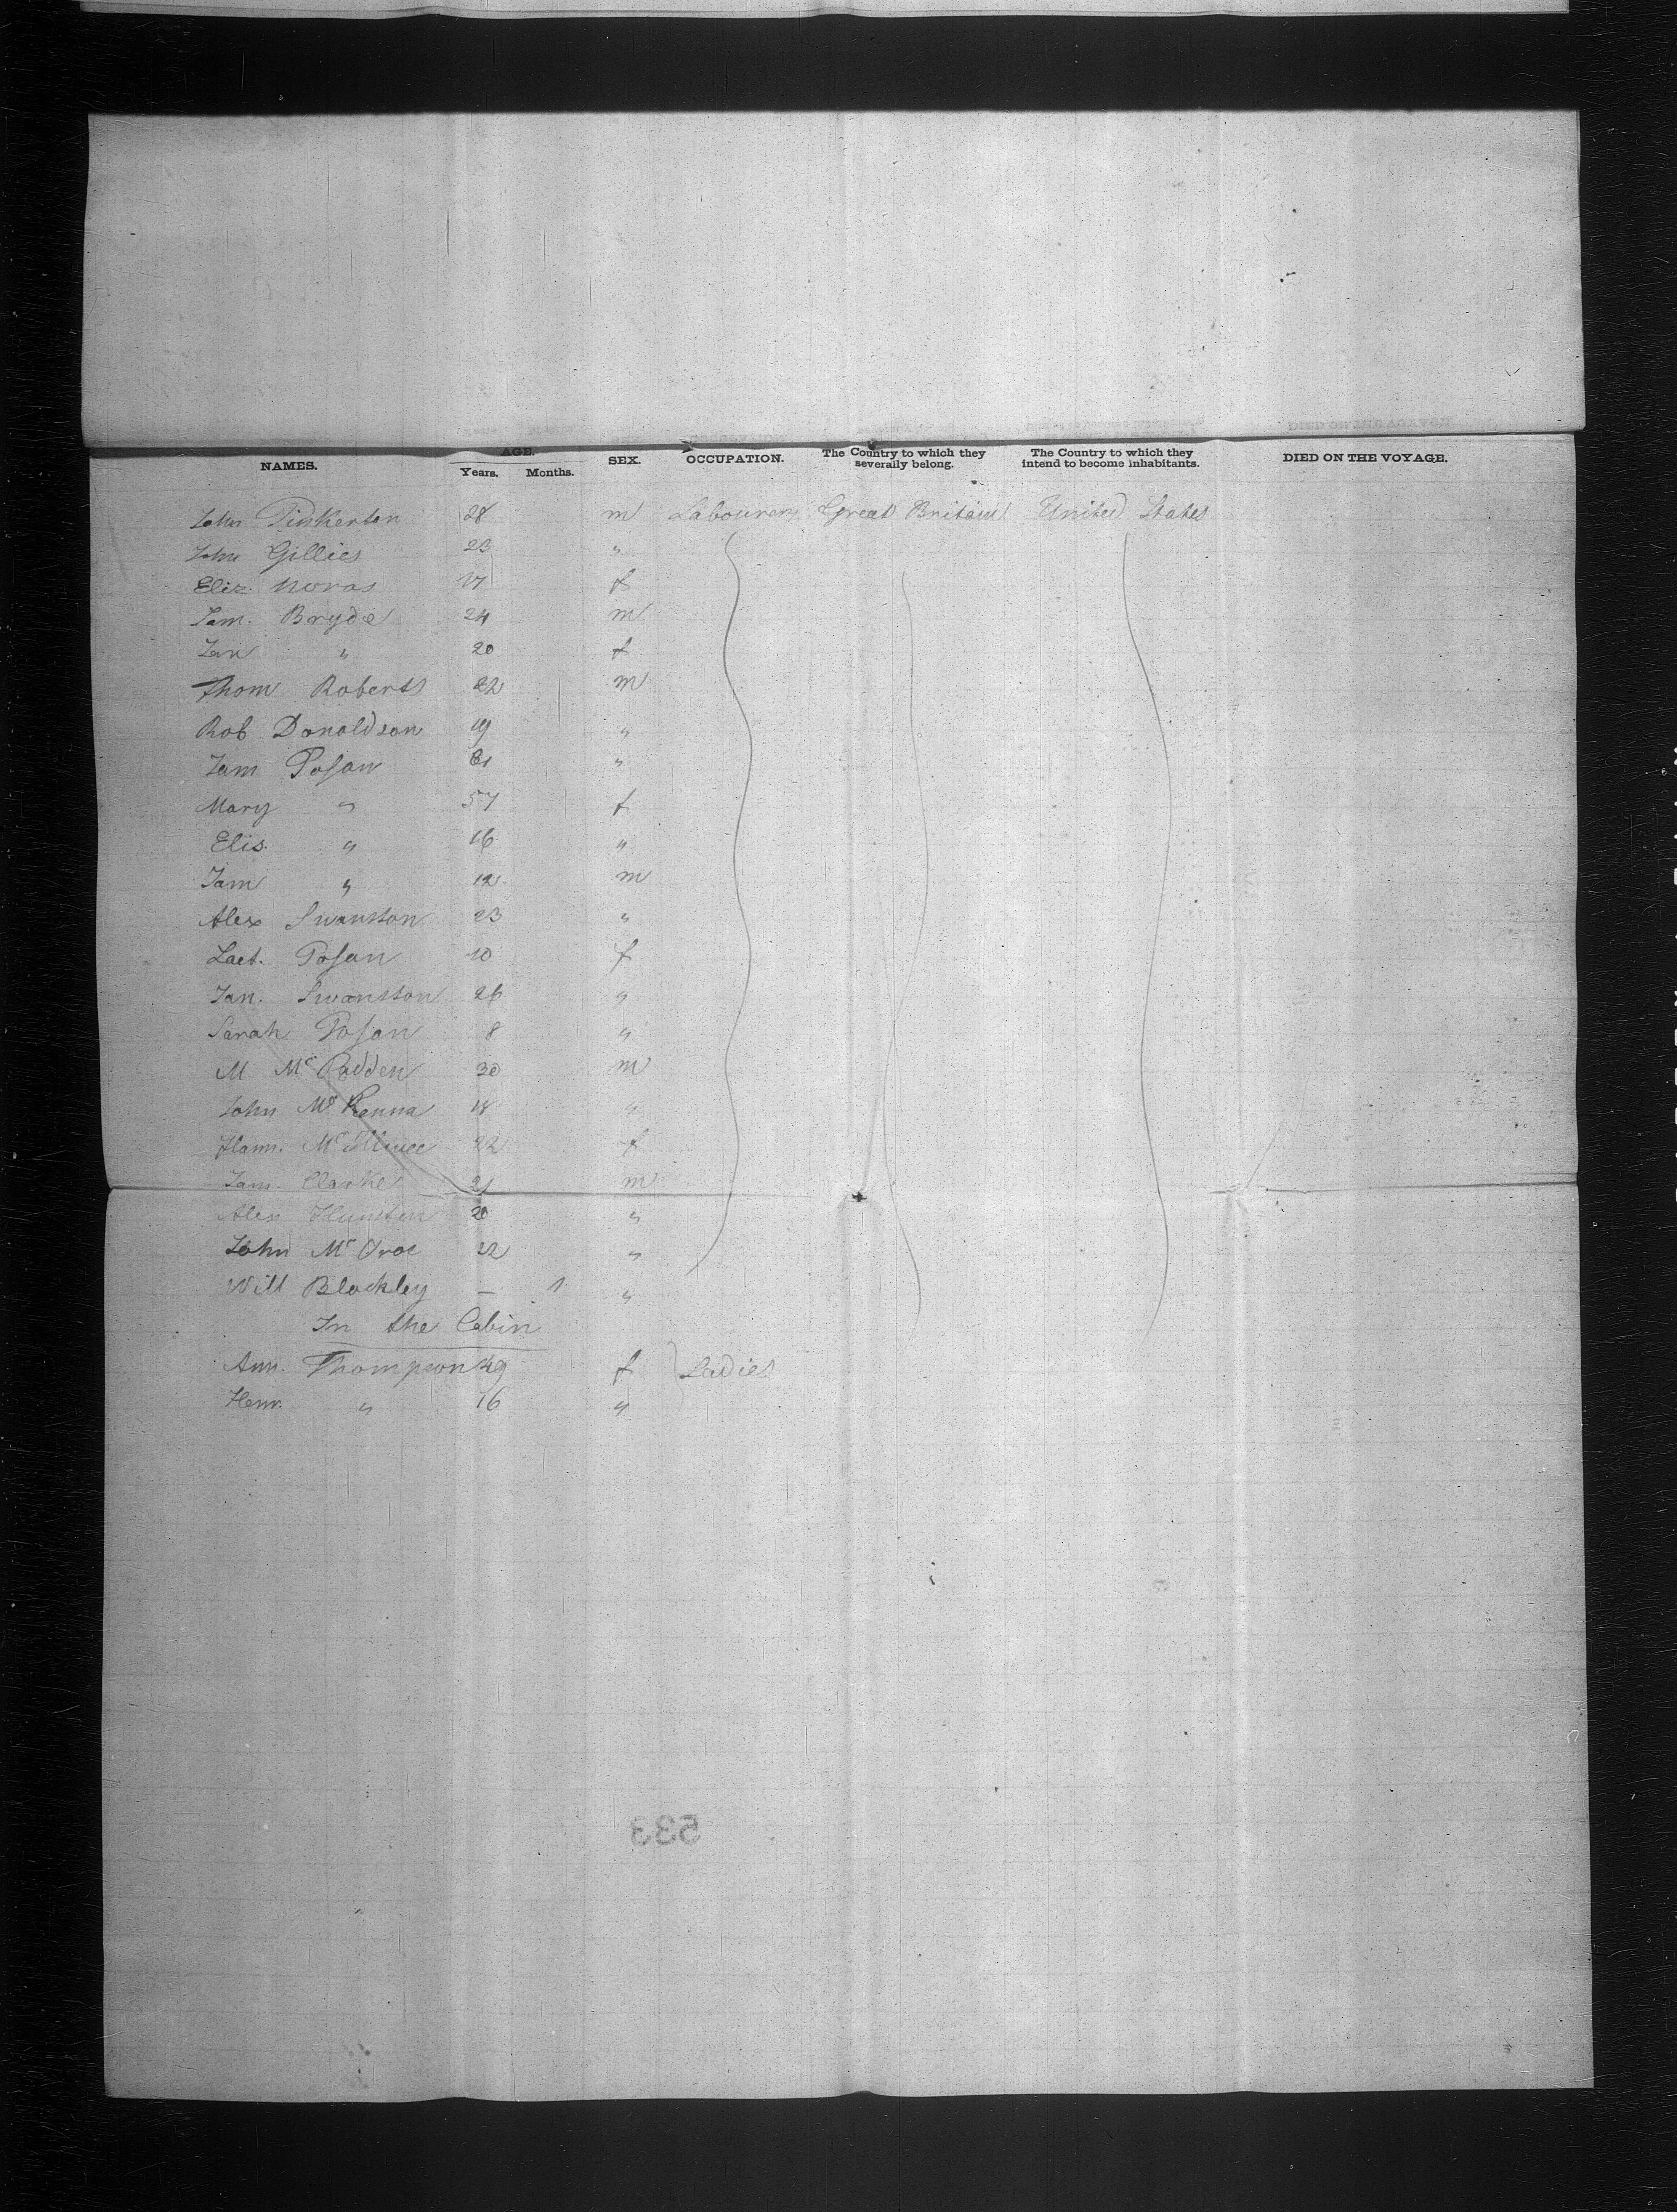 NAMES. AGE. Years. Months. SEX. OCCUPATION. The Country to which they severally belong. The Country to which they intend to become inhabitants. DIED ON THE VOYAGE.
John Pinkerton 28 m Labourers Great Britain United States
John Gillies 23 "
Eliz. Moras 17 f
Jam. Bryde 24 m
Jan " 20 f
Thom Roberts 22 m
Rob Donaldson 19 "
Jam Posan 61 "
Mary " 57 f
Elis. " 16 "
Jam " 12 m
Alex Swanston 23 "
Laet. Posan 10 f
Jan. Swanston 26 "
Sarah Posan 8 "
M McPadden 30 m
John McKenna 18 "
Hann. 22 f
Jam. Clarke 21 m
Alex 20 "
John McOroe 22 "
Will Blackley — 1 "
In the Cabin
Ann. Thompson 49 f Ladies
Henr. " 16 "
533